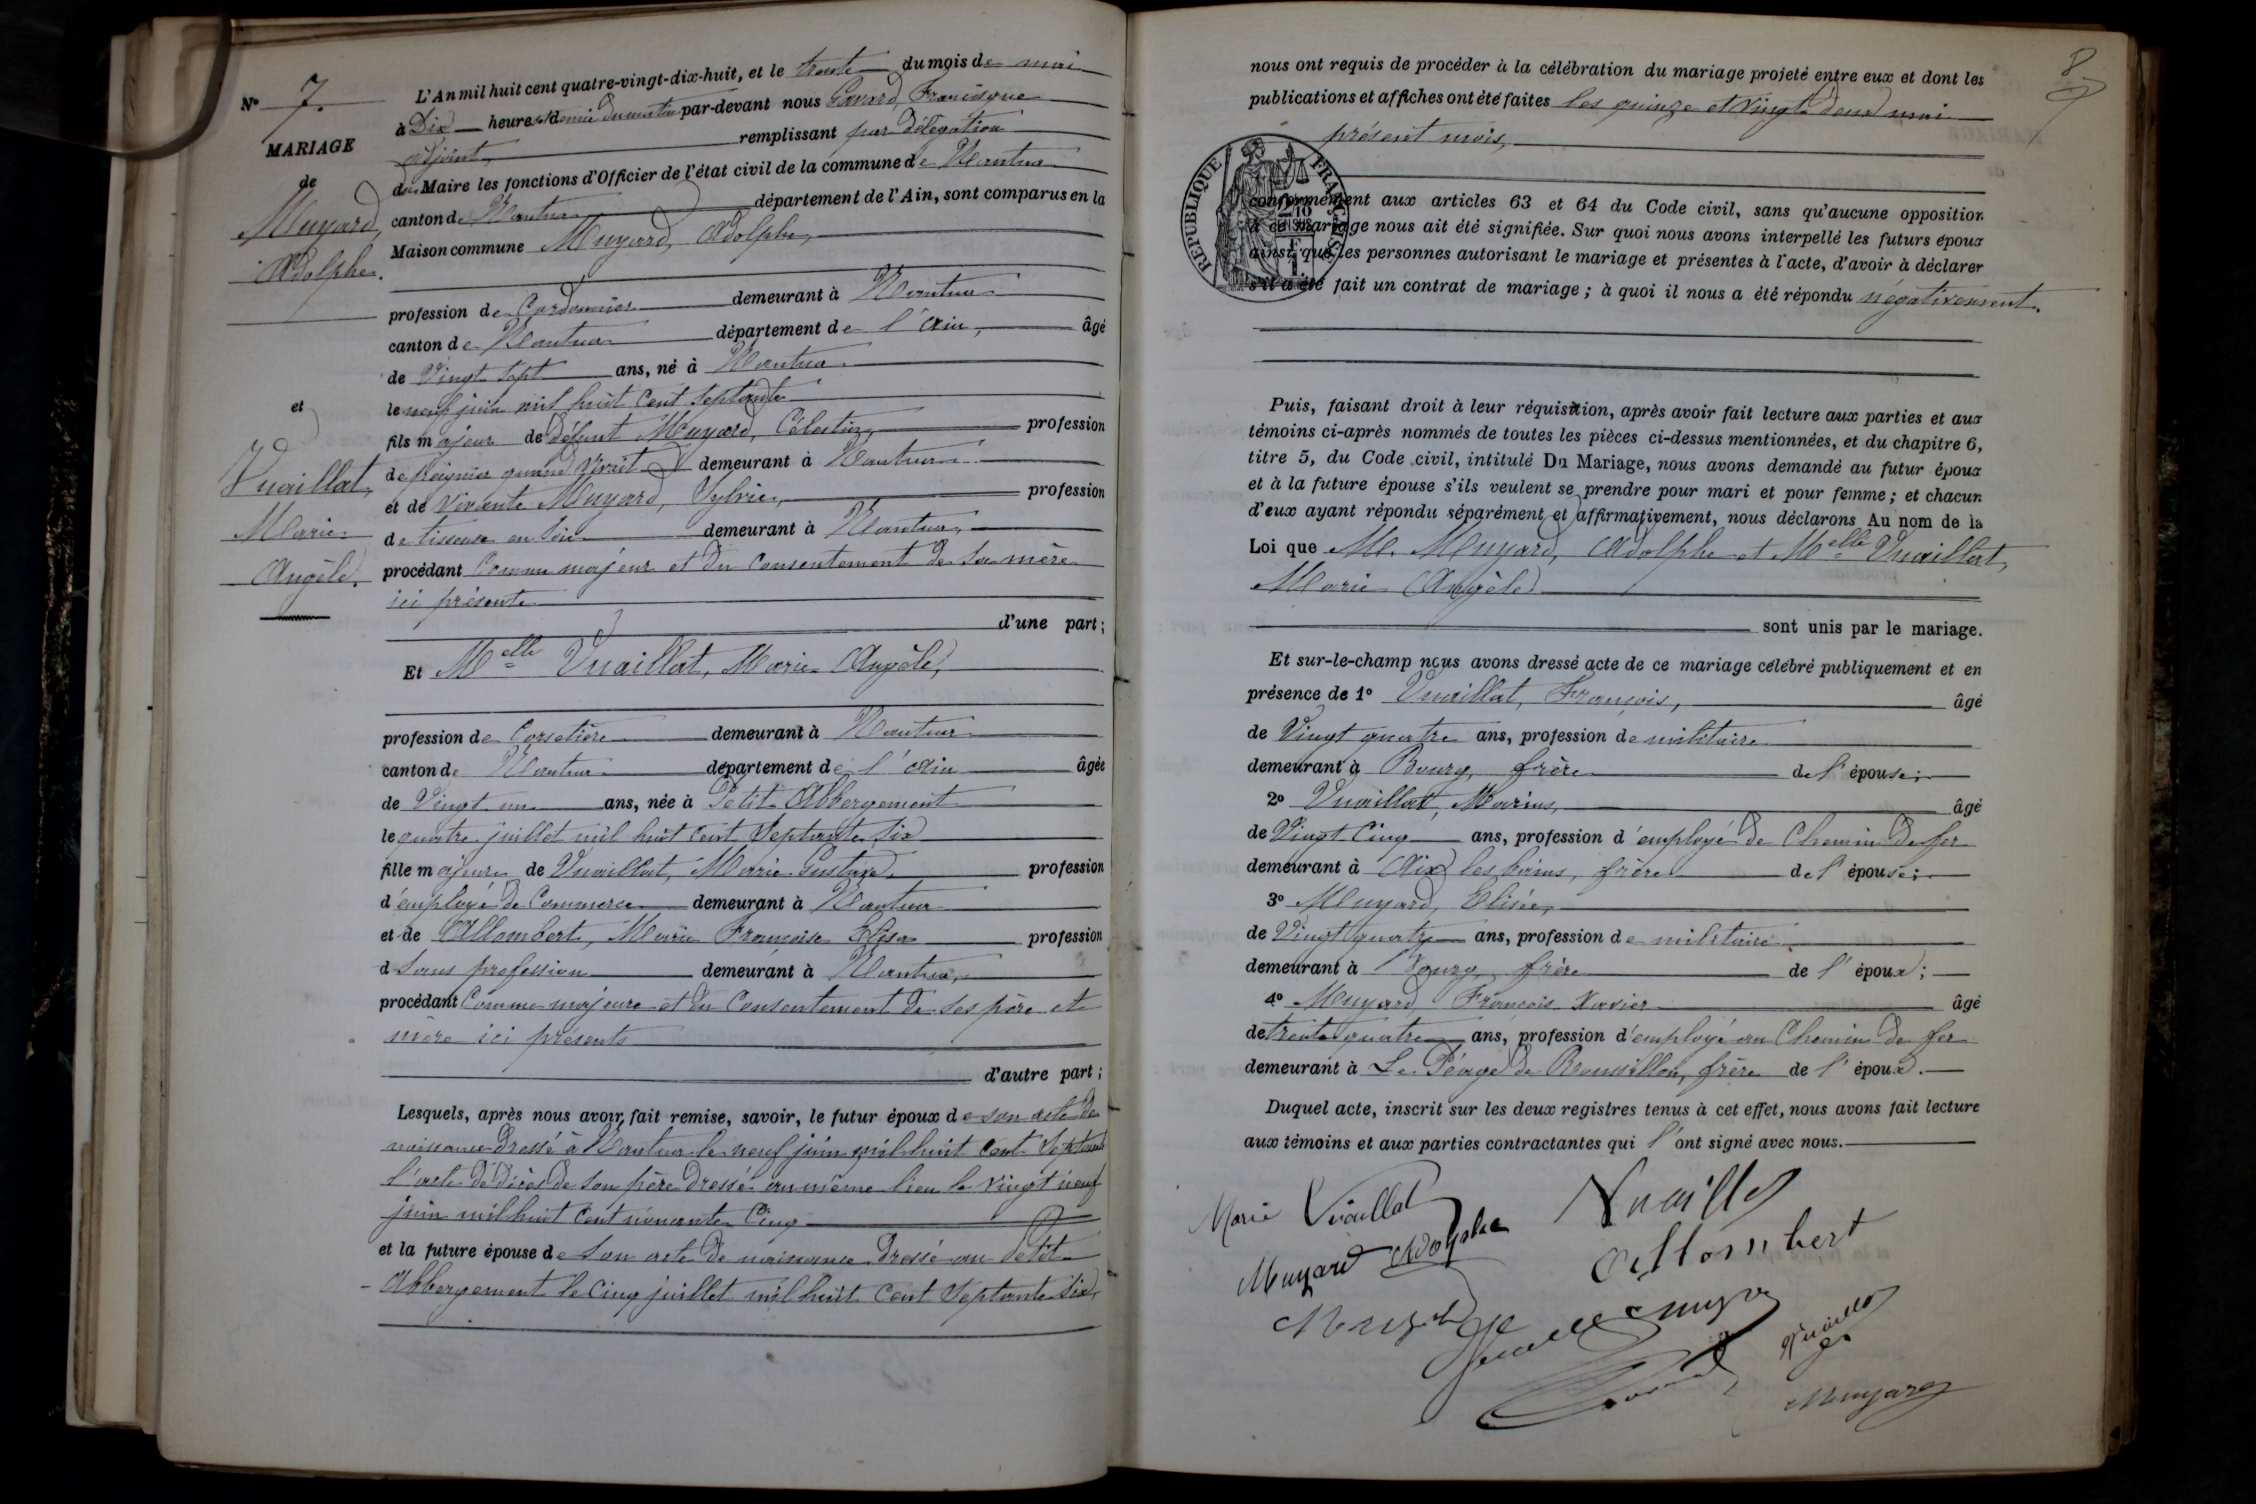 N° 7.
MARIAGE
de
Muyard,
Adolphe.
et
Vuaillat,
Marie
Angèle.
L'An mil huit cent quatre-vingt-dix-huit, et le trente du mois de mai
à Dix heures & demie du matin par-devant nous Gavard, Francisque
adjoint, remplissant par délégation
du Maire les fonctions d'Officier de l'état civil de la commune de Nantua
canton de Nantua département de l'Ain, sont comparus en la
Maison commune Muyard, Adolphe,
profession de Cordonnier demeurant à Nantua
canton de Nantua département de l'Ain, âgé
de Vingt sept ans, né à Nantua
le neuf juin mil huit cent septante
fils majeur de défunt Muyard, Célestin, profession
de peignier quand vivait demeurant à Nantua
et de vivante Muyard, Sylvie, profession
de tisseuse en soie demeurant à Nantua,
procédant comme majeur et du consentement de sa mère
ici présente
d'une part;
Et Melle Vuaillat, Marie Angèle,
profession de Corsetière demeurant à Nantua
canton de Nantua département de l'Ain âgée
de Vingt un ans, née à Petit Abbergement
le quatre juillet mil huit cent septante six
fille majeure de Vuaillat, Marie Gustave profession
d'employé de Commerce demeurant à Nantua
et de Allombert, Marie Françoise Elisa profession
d sans profession demeurant à Nantua,
procédant comme majeure et du consentement de ses père et
mère ici présents
d'autre part;
Lesquels, après nous avoir, fait remise, savoir, le futur époux de son acte de
naissance dressé à Nantua le neuf juin mil huit cent septante
l'acte de décès de son père dressé au même lieu le vingt neuf
juin mil huit cent nonante cinq
et la future épouse de son acte de naissance dressé au Petit
Abbergement le cinq juillet mil huit cent septante six,
8
nous ont requis de procéder à la célébration du mariage projeté entre eux et dont les
publications et affiches ont été faites les quinze et vingt deux mai
présent mois,
RÉPUBLIQUE FRANÇAISE
conformément aux articles 63 et 64 du Code civil, sans qu'aucune opposition
à ce mariage nous ait été signifiée. Sur quoi nous avons interpellé les futurs époux
ainsi que les personnes autorisant le mariage et présentes à l'acte, d'avoir à déclarer
s'il a été fait un contrat de mariage; à quoi il nous a été répondu négativement.
Puis, faisant droit à leur réquisition, après avoir fait lecture aux parties et aux
témoins ci-après nommés de toutes les pièces ci-dessus mentionnées, et du chapitre 6,
titre 5, du Code civil, intitulé Du Mariage, nous avons demandé au futur époux
et à la future épouse s'ils veulent se prendre pour mari et pour femme; et chacun
d'eux ayant répondu séparément et affirmativement, nous déclarons Au nom de la
Loi que M. Muyard, Adolphe et Melle Vuaillat,
Marie Angèle
sont unis par le mariage.
Et sur-le-champ nous avons dressé acte de ce mariage célébré publiquement et en
présence de 1° Vuaillat, François, âgé
de Vingt quatre ans, profession de militaire
demeurant à Bourg, frère de l'épouse;
2° Vuaillat, Marius, âgé
de Vingt Cinq ans, profession d'employé de Chemin de fer
demeurant à Aix les bains, frère de l'épouse;
3° Muyard, Elisée,
de Vingt quatre ans, profession de militaire
demeurant à Bourg, frère de l'époux;
4° Muyard, François Xavier âgé
de trente quatre ans, profession d'employé au Chemin de fer
demeurant à Le Péage de Roussillon, frère de l'époux.
Duquel acte, inscrit sur les deux registres tenus à cet effet, nous avons fait lecture
aux témoins et aux parties contractantes qui l'ont signé avec nous.
Marie Vuaillat
Vuaillat
Muyard Adolphe
Allombert
Muyard